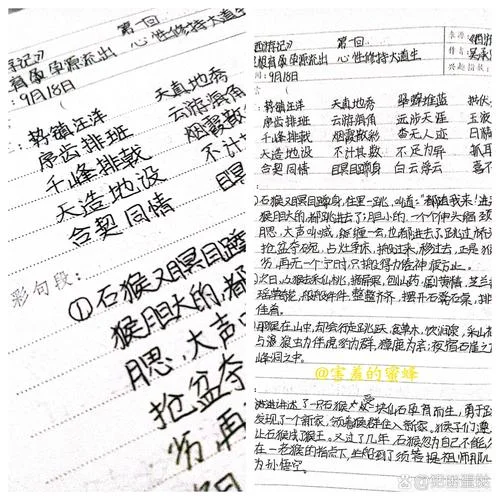 记》 第一回
根育孕源流出 心性修持大道生
:9月18日
势镇汪洋 天真地秀
序齿排班 云游海角
千峰排戟 烟霞散彩
天造地设 不计其
合契同情 瞑目蹲
彩句段:
①石猴又瞑目蹲
猴胆大的,都
腮、大声
抢盆夺
穷再
西游记》 第一回
根育孕源流出 心性修持大道生
间:9月18日
来源:《西游
作者:吴承
兴趣指数:
势镇汪洋 天真地秀
序齿排班 云游海角 远涉天涯 玉液
千峰排戟 烟霞散彩 杳无人迹 日
天造地设 不计其数 不足为异 抓耳
合契同情 瞑目蹲身 白云浮云
①石猴又瞑目蹲身,往里一跳,叫道:“都随我来!进
猴胆大的,都跳进去了;胆小的,一个个伸头缩颈
腮、大声叫喊,缠一会,也都进去了。跳过桥
抢盆夺碗,占灶争床,搬过来,移过去,正是猴
劣,再无一个宁时,只搬得力倦神疲方止。
次日,众猴去采仙桃,摘异果,刨山药,劚黄精,芝兰
瑶草奇花,般般件件,整整齐齐,摆开石凳石桌,排
那猴在山中,却会行走跳跃,食草木,饮涧泉,采山
与狼虫为伴,虎豹为群,獐鹿为亲;夜宿石崖之
峰洞之中。
@害羞的蜜蜂
讲述了一只石猴受一块仙石孕育而生,勇于
发现了一个新家,领着猴群住入新家。猴子们遵
让石猴成了猴王。又过了几年,石猴忽为自己不能
在一老猴的指点下,坐船到了须菩提祖师那儿
为孙悟空。